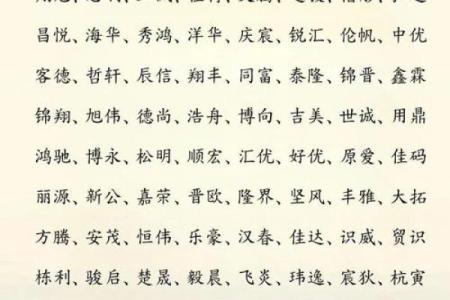 昌悦、海华、秀鸿、洋华、庆宸、锐汇、伦帆、中优
客德、哲轩、辰信、翔丰、同富、泰隆、锦晋、鑫霖
锦翔、旭伟、德尚、浩舟、博向、吉美、世诚、用鼎
鸿驰、博永、松明、顺宏、汇优、好优、原爱、佳码
丽源、新公、嘉荣、晋欧、隆界、坚风、丰雅、大拓
方腾、安茂、恒伟、乐豪、汉春、佳达、识威、贸识
栋利、骏启、楚晟、毅晨、飞炎、玮逸、宸狄、杭寅